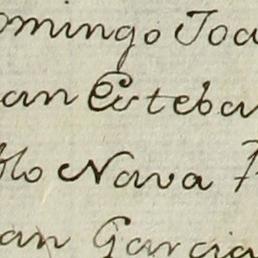 omingo Joa
an Esteba
blo Nava P
an Garcia